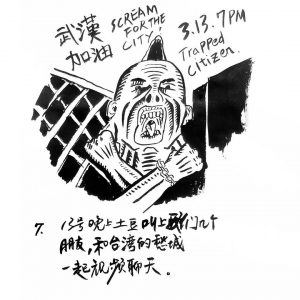 武漢
加油
SCREAM
FOR THE
CITY!
3.13.7PM
Trapped
Citizen.
7. 13号晚上土豆叫上我们几个
朋友,和台湾的愁城
一起视频聊天。